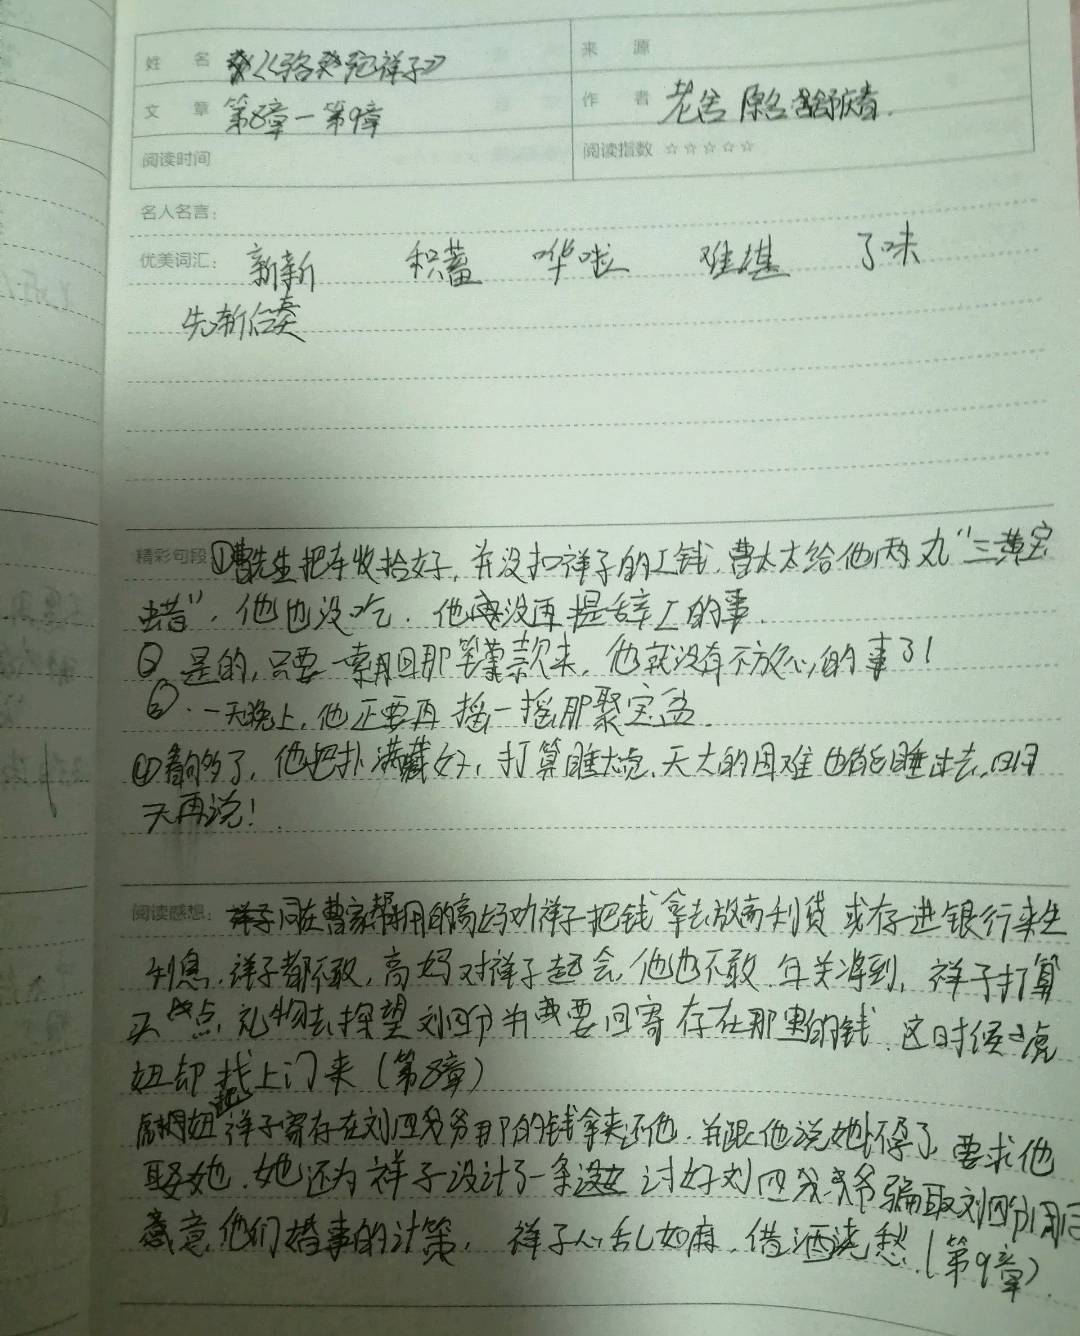 姓 名 《骆驼祥子》 来 源
文 章 第8章一第9章 作 者 老舍 原名舒庆春.
阅读时间 阅读指数 ☆☆☆☆☆
名人名言:
优美词汇: 崭新 积蓄 哗啦 难堪 了味
先斩后奏
精彩句段 ①曹先生把车收拾好,并没扣祥子的工钱.曹太太给他两丸"三黄宝
蜡",他也没吃.他没再提辞工的事.
② 是的,只要一索回那笔款来,他就没有不放心的事了!
③.一天晚上,他正要再摇一摇那聚宝盆.
④ 了,他把扑满藏好,打算睡大觉.天大的困难也能睡过去.明
天再说!
阅读感想: 同在曹家帮用的高妈劝祥子把钱拿去放高利贷或存进银行来生
利息,祥子都不敢,高妈对祥子起会,他也不敢.年关将到,祥子打算
买点礼物去探望刘四爷并要回寄存在那里的钱.这时候虎
妞却找上门来(第8章)
虎妞把祥子寄存在刘四爷爷那的钱拿来还他.并跟他说她怀孕了,要求他
娶她.她还为祥子设计了一条讨好刘四爷爷骗取刘四爷同
意他们婚事的计策, 祥子心乱如麻.借酒浇愁.(第9章).